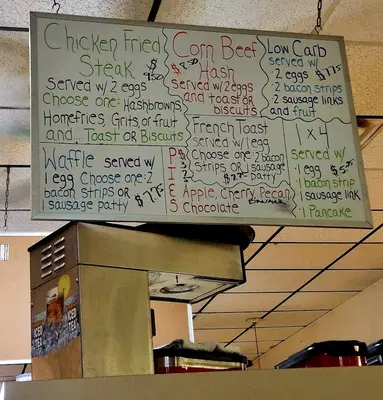 Chicken Fried
Steak
$ 9.50
Served w/ 2 eggs
Choose one: Hashbrowns,
Homefries, Grits or fruit
and... Toast or Biscuits
Corn Beef
$ 8.50 Hash
Served w/ 2 eggs
and toast or
biscuits
Low Carb
served w/
2 eggs $ 7.75
2 bacon strips
2 sausage links
and fruit
French Toast
served w/ 1 egg
Choose one: 2 bacon
strips, or sausage
patty
Waffle served w/
1 egg Choose one: 2
bacon strips or
1 sausage patty $ 7.75
PIES
Apple, Cherry, Pecan
Chocolate
1 x 4
served w/
1 egg
1 bacon strip
1 sausage link
1 Pancake
ICED
TEA